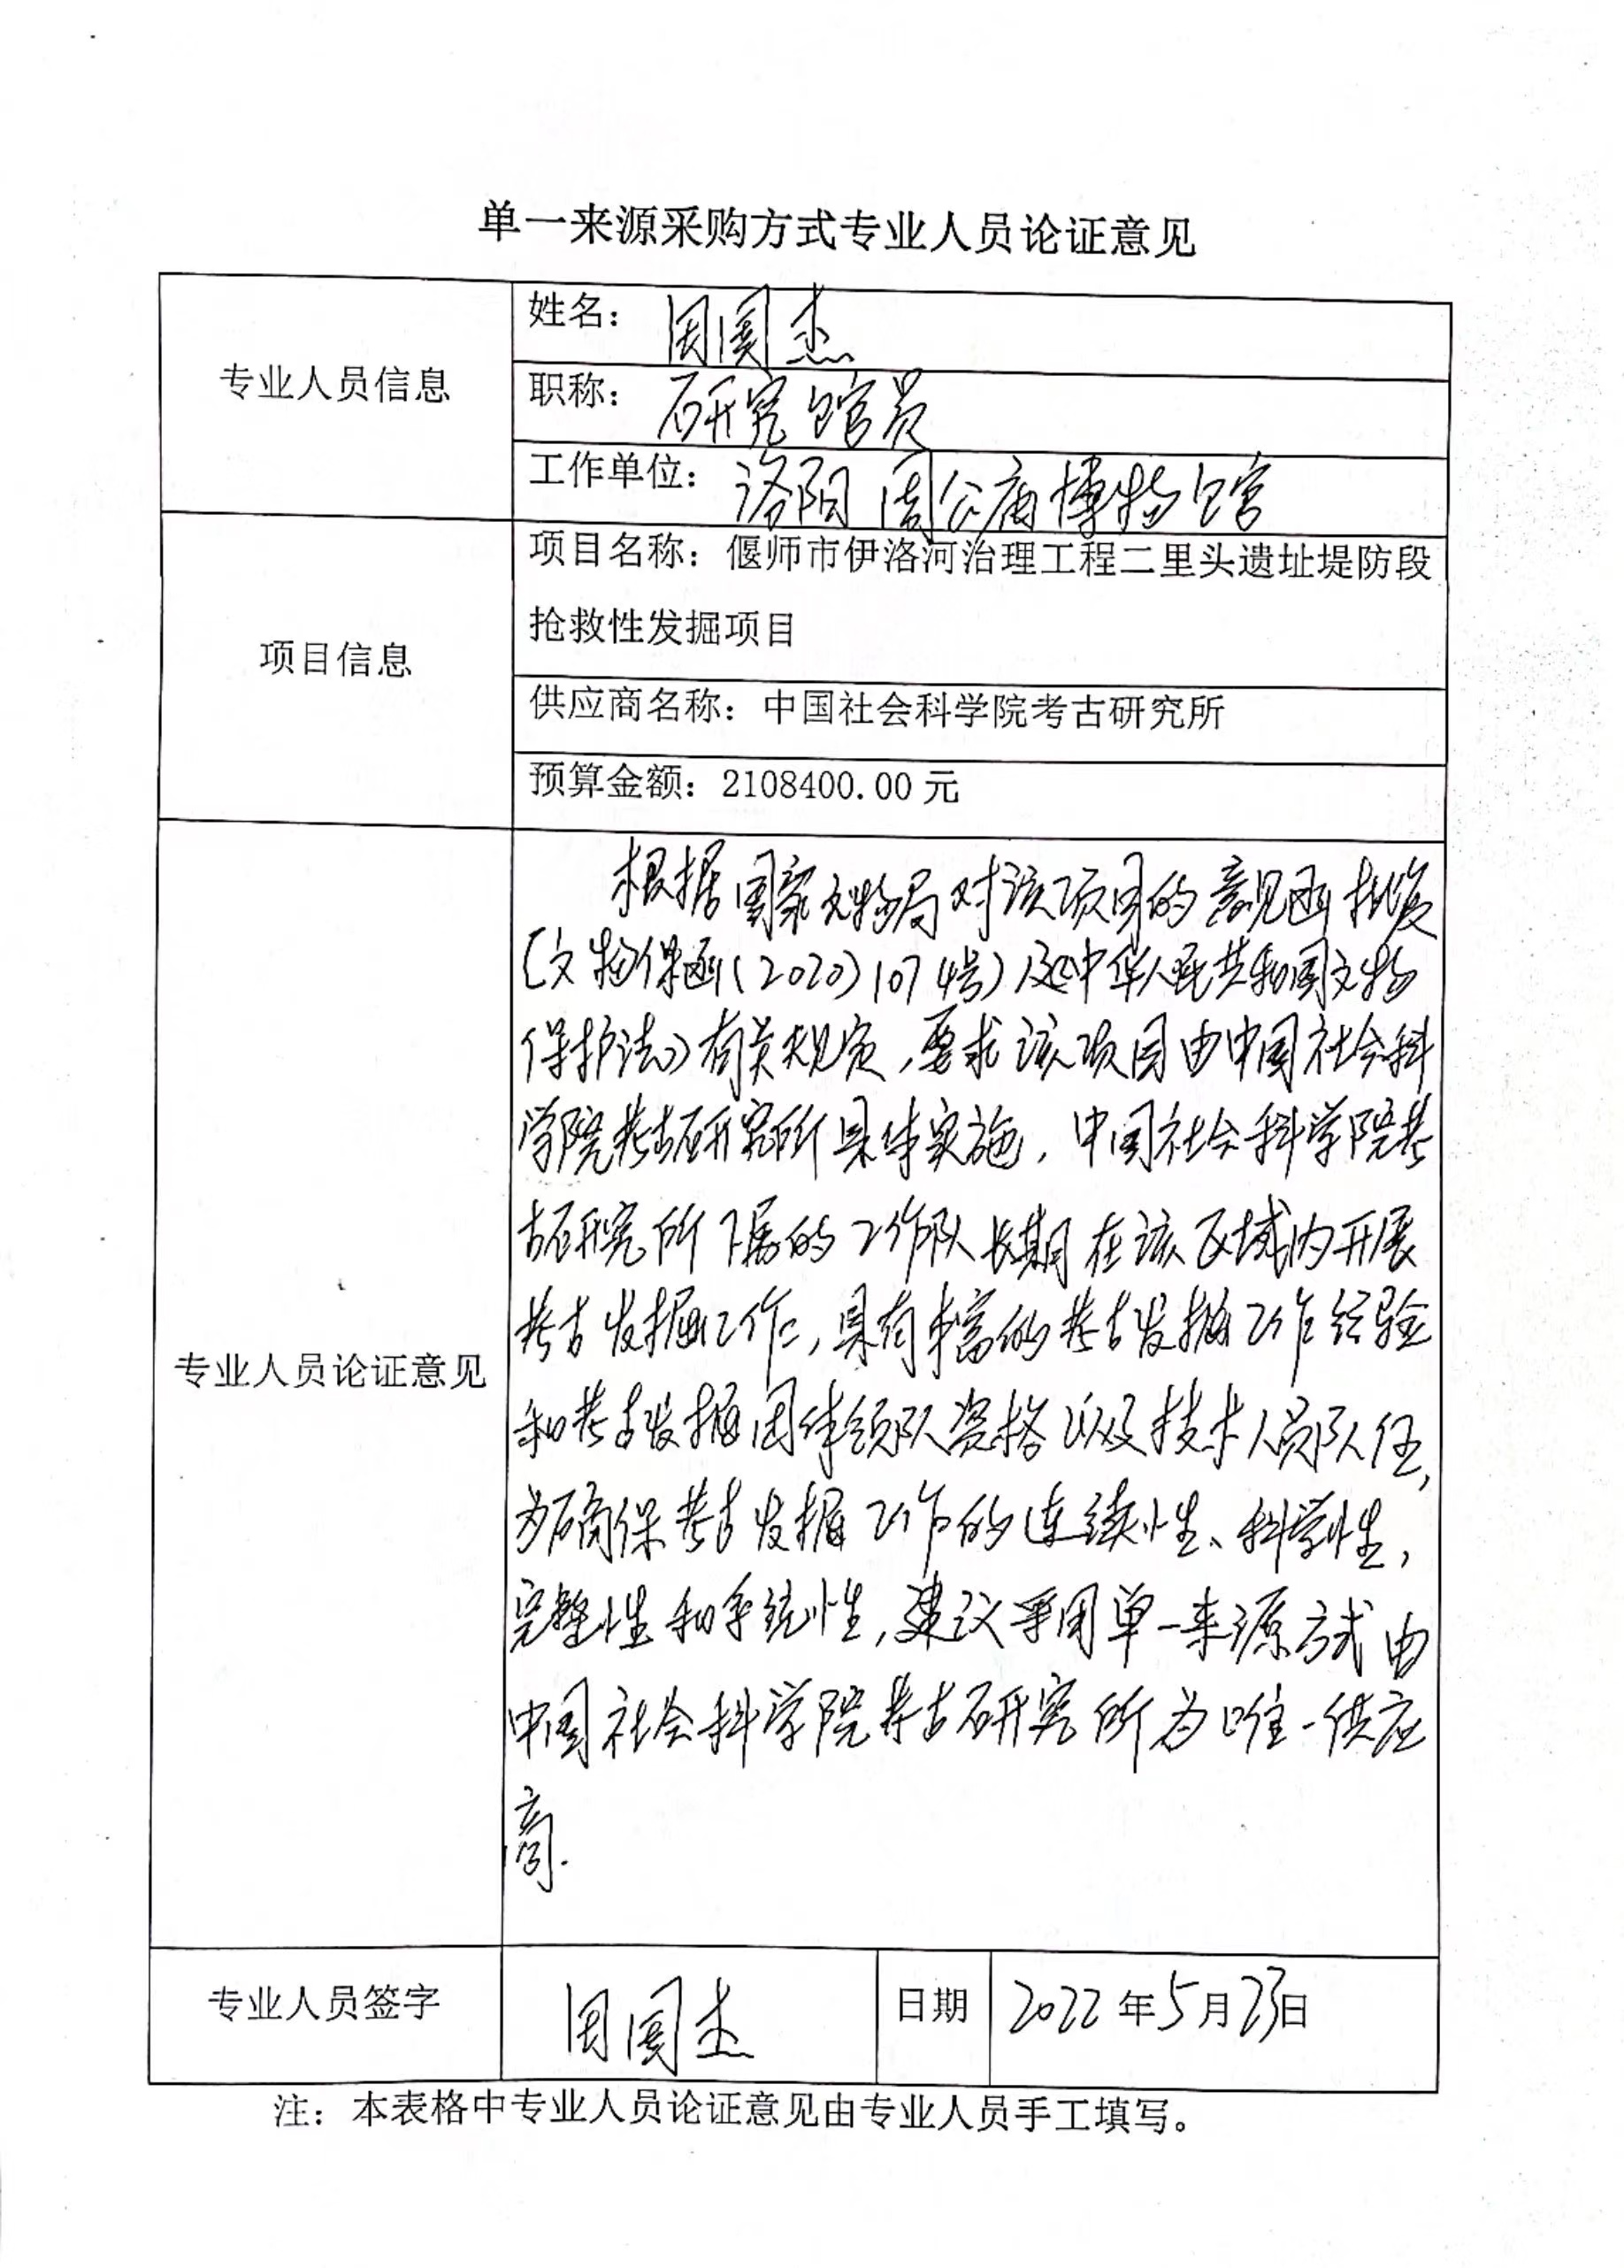 单一来源采购方式专业人员论证意见
专业人员信息
姓名：周国杰
职称：研究馆员
工作单位：洛阳周公庙博物馆
项目信息
项目名称：偃师市伊洛河治理工程二里头遗址堤防段
抢救性发掘项目
供应商名称：中国社会科学院考古研究所
预算金额：2108400.00 元
专业人员论证意见
根据国家文物局对该项目的意见函批复
〔文物保函(2020)1074号）及《中华人民共和国文物
保护法》有关规定，要求该项目由中国社会科
学院考古研究所具体实施，中国社会科学院考
古研究所下属的工作队长期在该区域内开展
考古发掘工作，具有丰富的考古发掘工作经验
和考古发掘团体领队资格以及技术人员队伍，
为确保考古发掘工作的连续性、科学性，
完整性和系统性，建议采用单一来源方式由
中国社会科学院考古研究所为唯一供应
商.
专业人员签字 周国杰 日期 2022年5月23日
注：本表格中专业人员论证意见由专业人员手工填写。